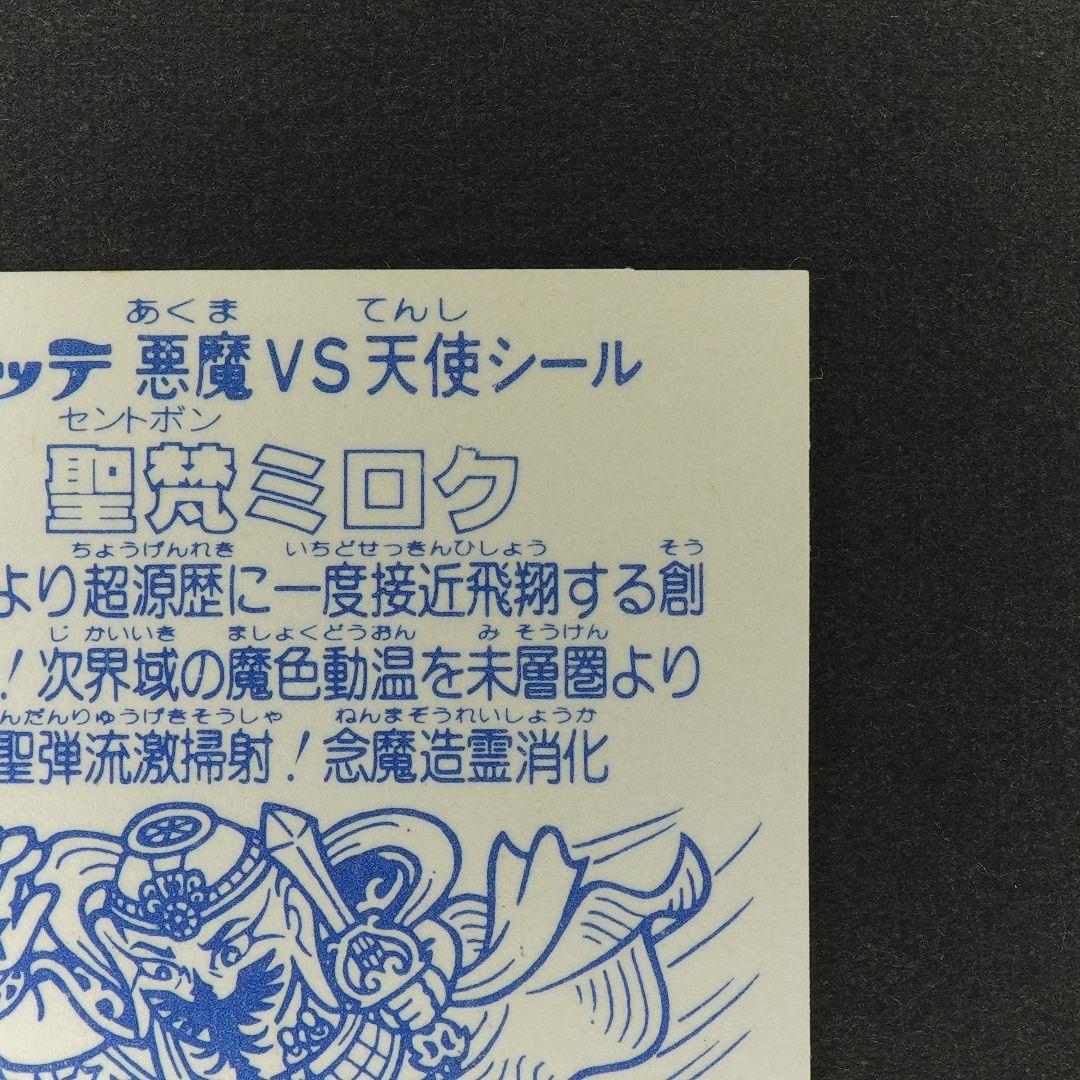 あくま てんし
ッテ 悪魔VS天使シール
セントボン
聖梵ミロク
ちょうげんれき いちどせっきんひしょう そう
より超源歴に一度接近飛翔する創
じかいいき ましょくどうおん みそうけん
！次界域の魔色動温を未層圏より
んだんりゅうげきそうしゃ ねんまぞうれいしょうか
聖弾流激掃射！念魔造霊消化